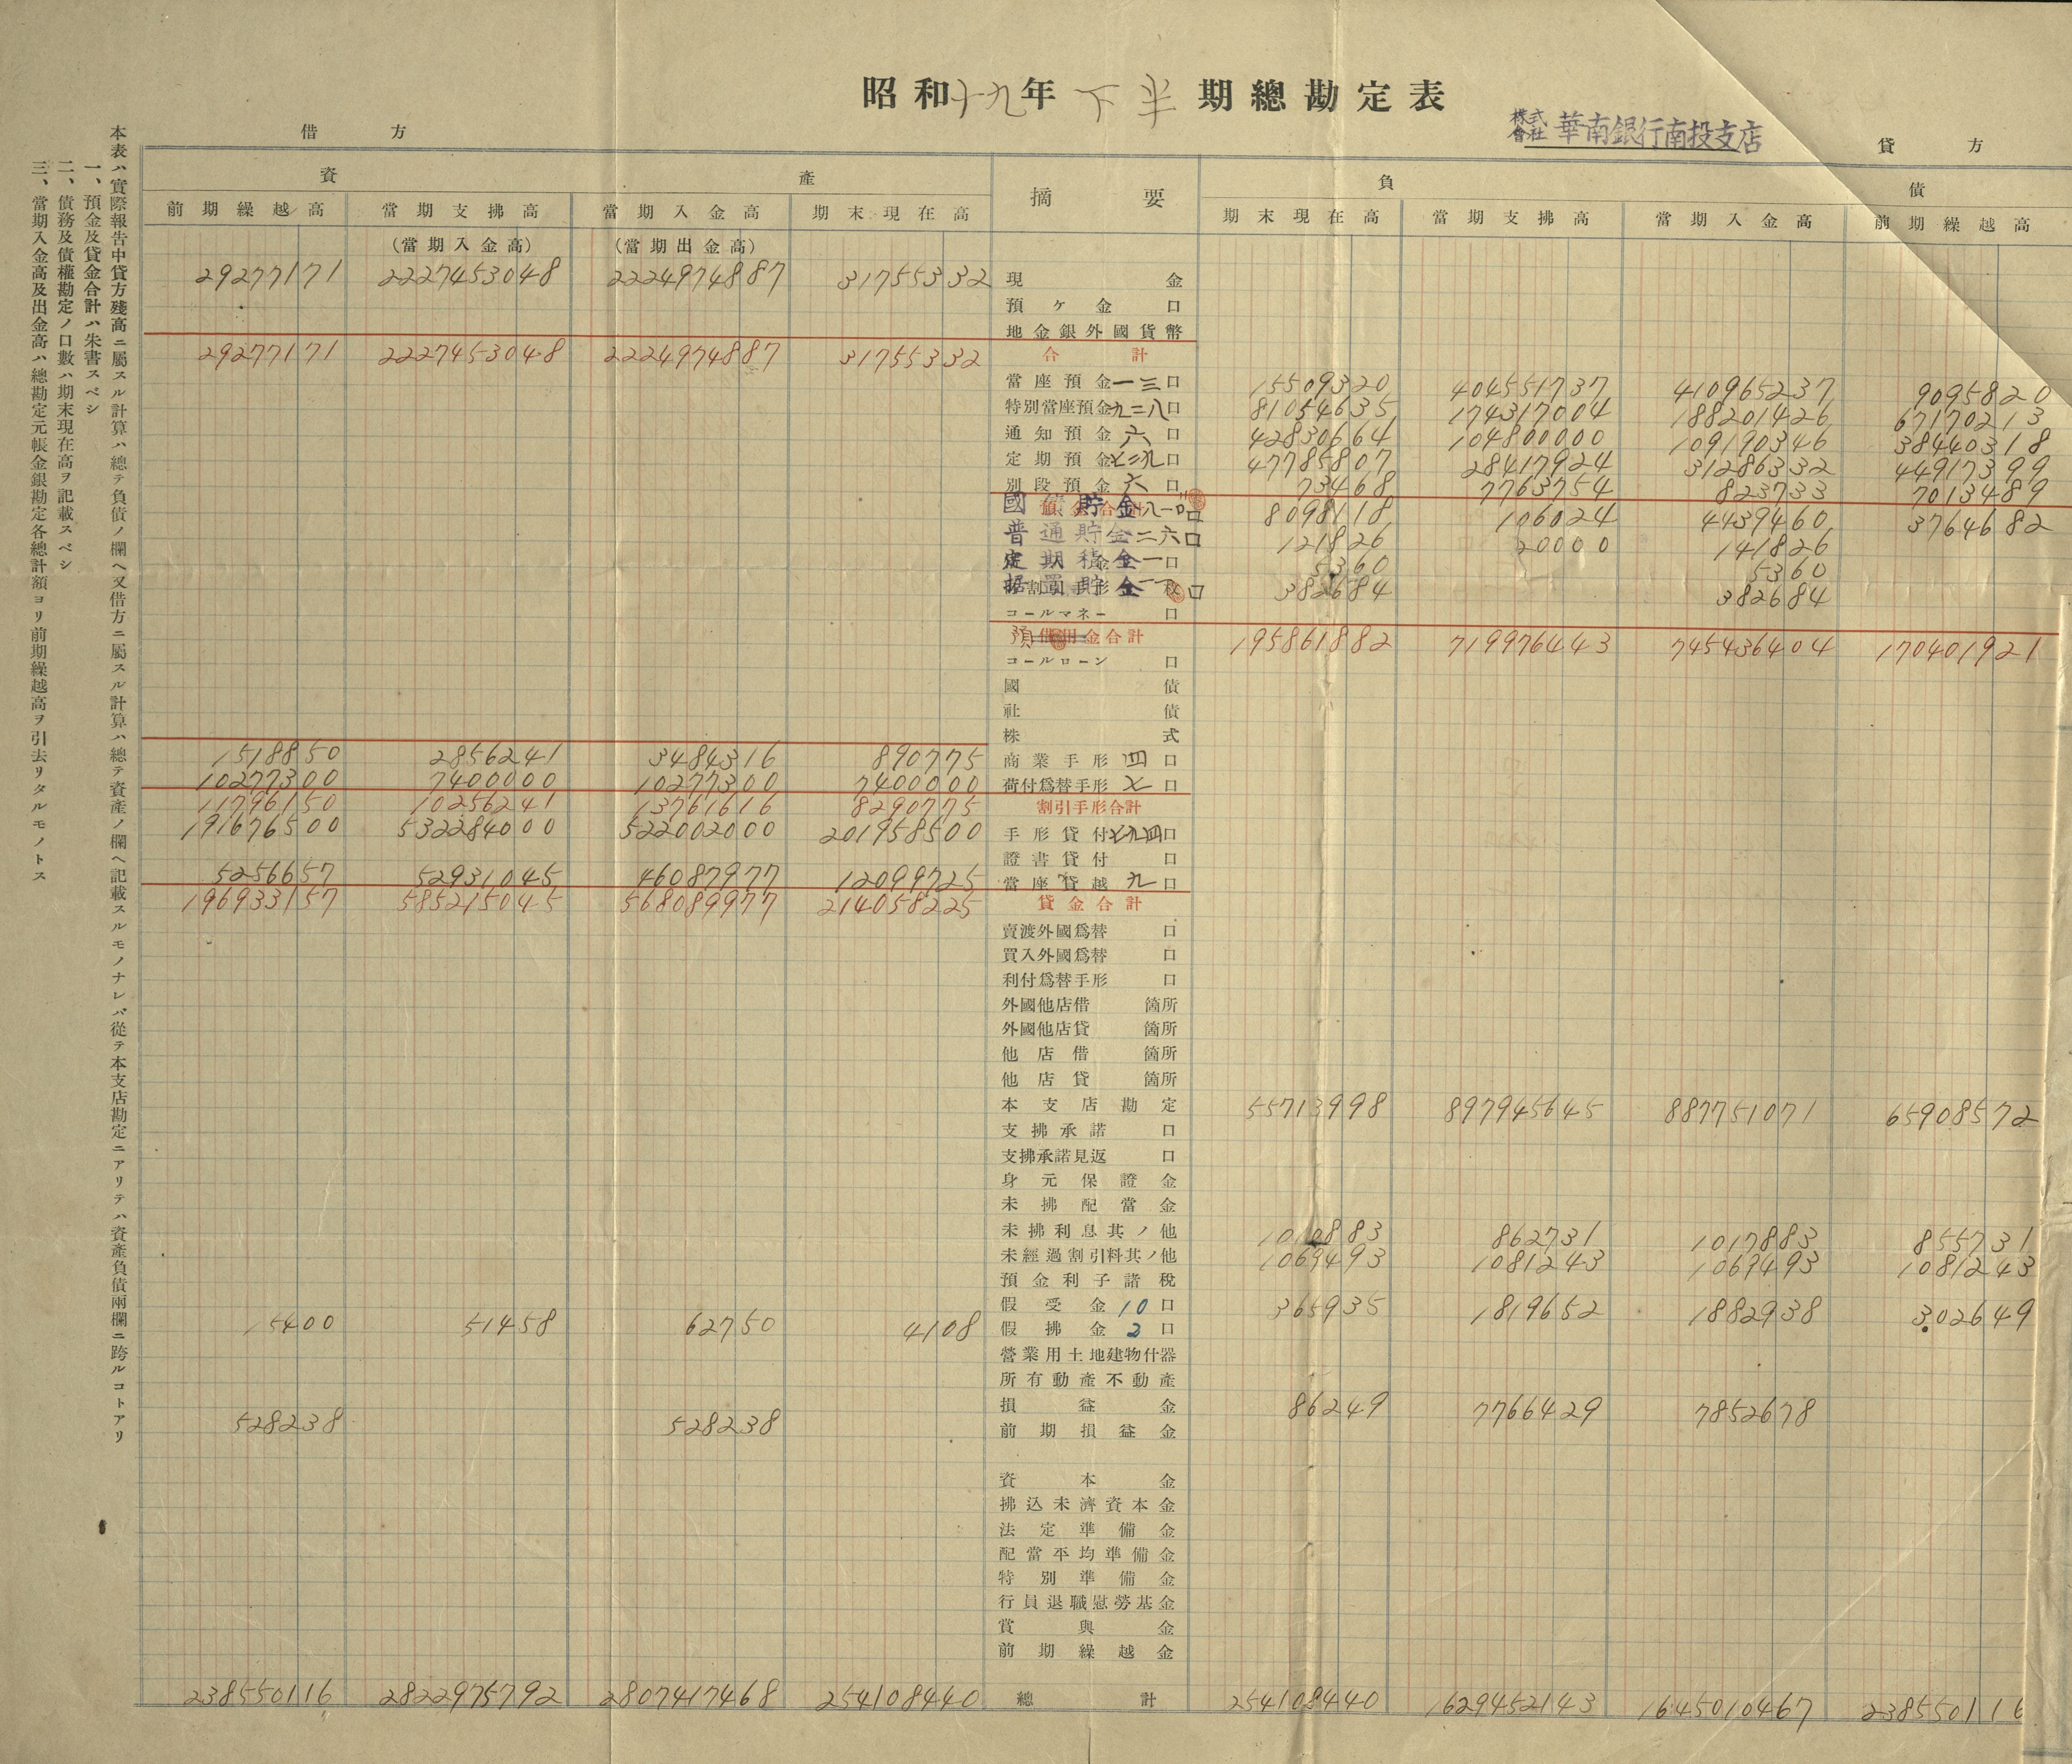 昭和十九年下半期總勘定表
株式會社 華南銀行南投支店
借方 貸方
資產 摘要 負債
前期繰越高 當期支拂高 當期入金高 期末現在高 期末現在高 當期支拂高 當期入金高 前期繰越高
(當期入金高) (當期出金高)
29277171 2227453048 2224974887 31755332 現金
預ケ金 口
地金銀外國貨幣
29277171 2227453048 2224974887 31755332 合計
當座預金一三口 15509320 404551737 410965237 9095820
特別當座預金九二八口 81054635 174317004 188201426 67170213
通知預金六口 42830664 104800000 109190346 38440318
定期預金七二九口 47785807 28417924 31286332 44917399
別段預金六口 73468 7763754 823733 7013489
國債貯金八一口 8098118 106024 4439460 3764682
普通貯金二六口 121826 20000 141826
定期積金一口 5360 5360
据置貯金一一口 382684 382684
コールマネー 口
預金合計 195861882 719976443 745436404 170401921
コールローン 口
國債
社債
株式
1518850 2856241 3484316 890775 商業手形四口
10277300 7400000 10277300 7400000 荷付爲替手形七口
11796150 10256241 13761616 8290775 割引手形合計
191676500 532284000 522002000 201958500 手形貸付七九四口
證書貸付 口
5256657 52931045 46087977 12099725 當座貸越九口
196933157 585215045 568089977 214058225 貸金合計
賣渡外國爲替 口
買入外國爲替 口
利付爲替手形 口
外國他店借 箇所
外國他店貸 箇所
他店借 箇所
他店貸 箇所
本支店勘定 55713998 897945645 887751071 65908572
支拂承諾 口
支拂承諾見返 口
身元保證金
未拂配當金
未拂利息其ノ他 1010883 862731 1017883 855731
未經過割引料其ノ他 1069493 1081243 1069493 1081243
預金利子諸稅
假受金10口 365935 1819652 1882938 302649
15400 51458 62750 4108 假拂金2口
營業用土地建物什器
所有動產不動產
損益金 86249 7766429 7852678
528238 528238 前期損益金
資本金
拂込未濟資本金
法定準備金
配當平均準備金
特別準備金
行員退職慰勞基金
賞與金
前期繰越金
238550116 2822975792 2807417468 254108440 總計 254108440 1629452143 1645010467 238550116
本表ハ實際報告中貸方殘高ニ屬スル計算ハ總テ負債ノ欄ヘ又借方ニ屬スル計算ハ總テ資產ノ欄ヘ記載スルモノナレバ從テ本支店勘定ニアリテハ資產負債兩欄ニ跨ルコトアリ
一、預金及貸金合計ハ朱書スベシ
二、債務及債權勘定ノ口數ハ期末現在高ヲ記載スベシ
三、當期入金高及出金高ハ總勘定元帳金銀勘定各總計額ヨリ前期繰越高ヲ引去リタルモノトス